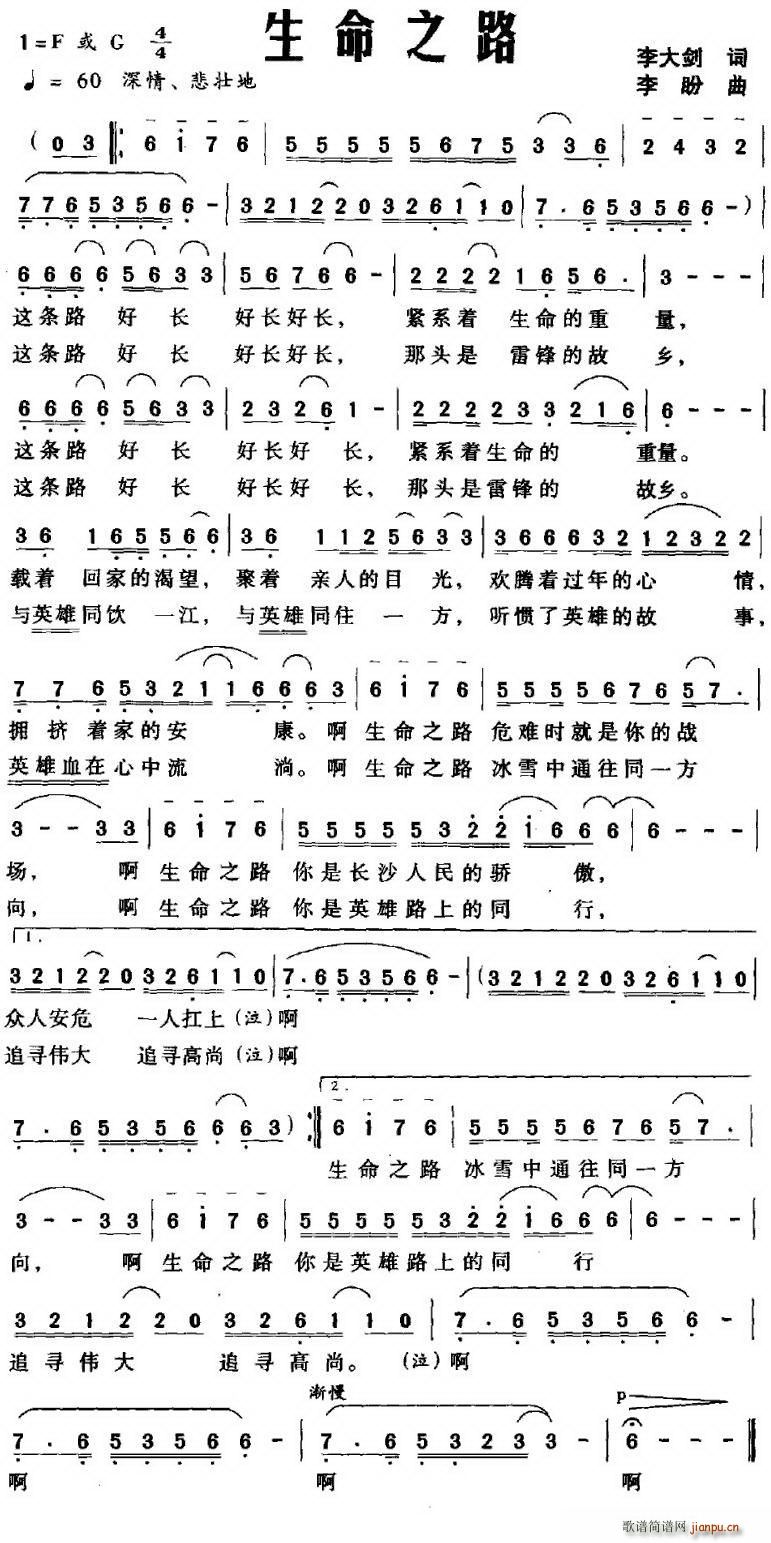 生命之路
1=F 或 G 4/4
李大剑 词
♩= 60 深情、悲壮地
李 盼 曲
( 0 3 ‖: 6 i 7 6 | 5 5 5 5 5 6 7 5 3 3 6 | 2 4 3 2
7 7 6 5 3 5 6 6 6 - | 3 2 1 2 2 0 3 2 6 1 1 0 | 7 . 6 5 3 5 6 6 6 - )
6 6 6 6 5 6 3 3 | 5 6 7 6 6 - | 2 2 2 2 1 6 5 6 . | 3 - - -
这条路 好 长 好长好长, 紧系着 生命的重 量,
这条路 好 长 好长好长, 那头是 雷锋的故 乡,
6 6 6 6 5 6 3 3 | 2 3 2 6 1 - | 2 2 2 2 2 3 3 2 1 6 | 6 - - -
这条路 好 长 好长好 长, 紧系着生命的 重量。
这条路 好 长 好长好 长, 那头是雷锋的 故乡。
3 6 1 6 5 5 6 6 | 3 6 1 1 2 5 6 3 3 | 3 6 6 6 6 3 2 1 2 3 2 2
载着 回家的渴望, 聚着 亲人的目 光, 欢腾着过年的心 情,
与英雄同饮 一江, 与英雄同住 一 方, 听惯了英雄的故 事,
7 7 6 5 3 2 1 1 6 6 6 3 | 6 i 7 6 | 5 5 5 5 6 7 6 5 7 .
拥 挤 着家的安 康。啊 生命之路 危难时就是你的战
英雄血在心中流 淌。啊 生命之路 冰雪中通往同一方
3 - - 3 3 | 6 i 7 6 | 5 5 5 5 5 3 2 2 i 6 6 6 | 6 - - -
场, 啊 生命之路 你是长沙人民的骄 傲,
向, 啊 生命之路 你是英雄路上的同 行,
1.
3 2 1 2 2 0 3 2 6 1 1 0 | 7 . 6 5 3 5 6 6 6 - | ( 3 2 1 2 2 0 3 2 6 1 1 0
众人安危 一人扛上(泣)啊
追寻伟大 追寻高尚(泣)啊
2.
7 . 6 5 3 5 6 6 6 3 ) :‖ 6 i 7 6 | 5 5 5 5 6 7 6 5 7 .
生命之路 冰雪中通往同一方
3 - - 3 3 | 6 i 7 6 | 5 5 5 5 5 3 2 2 i 6 6 6 | 6 - - -
向, 啊 生命之路 你是英雄路上的同 行
3 2 1 2 2 0 3 2 6 1 1 0 | 7 . 6 5 3 5 6 6 -
追寻伟大 追寻高尚。 (泣)啊
渐慢
p
7 . 6 5 3 5 6 6 - | 7 . 6 5 3 2 3 3 - | 6 - - - ‖
啊 啊 啊
歌谱简谱网 jianpu.cn